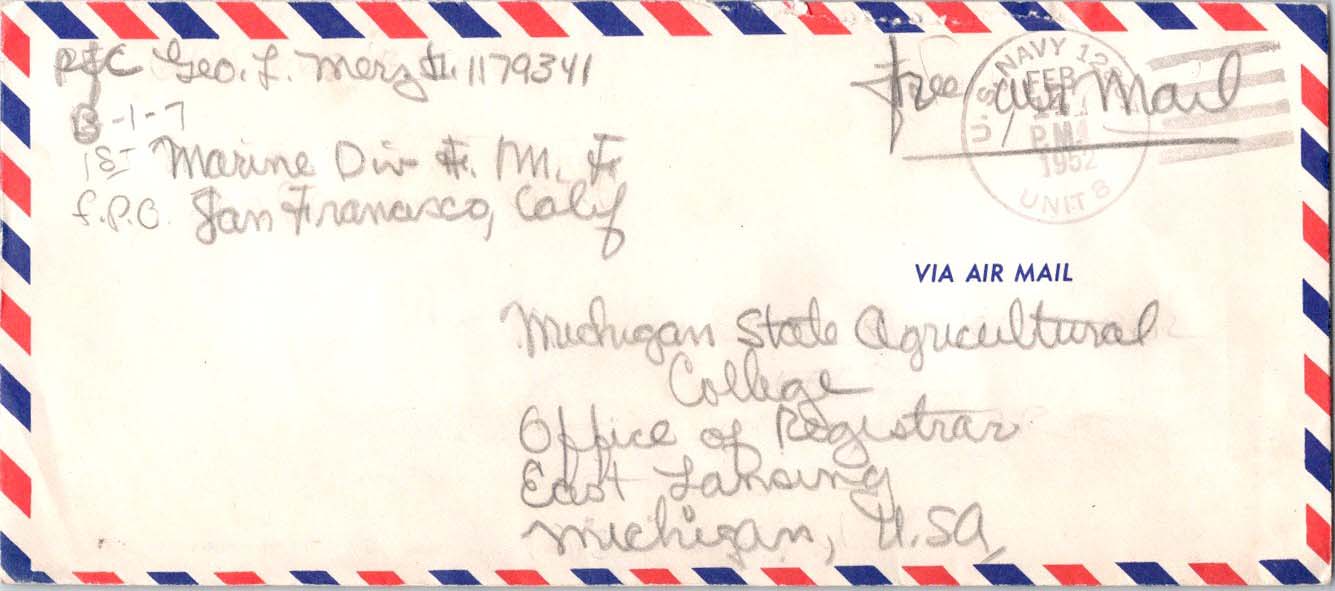 PFC Geo. L. Merz Jr. 1179341
B-1-7
1ST Marine Div F. M. F
F.P.O. San Francisco, Calif
Free Air Mail
U.S. NAVY 12
FEB
P.M.
1952
UNIT 8
VIA AIR MAIL
Michigan State Agricultural
College
Office of Registrar
East Lansing
Michigan, U.SA